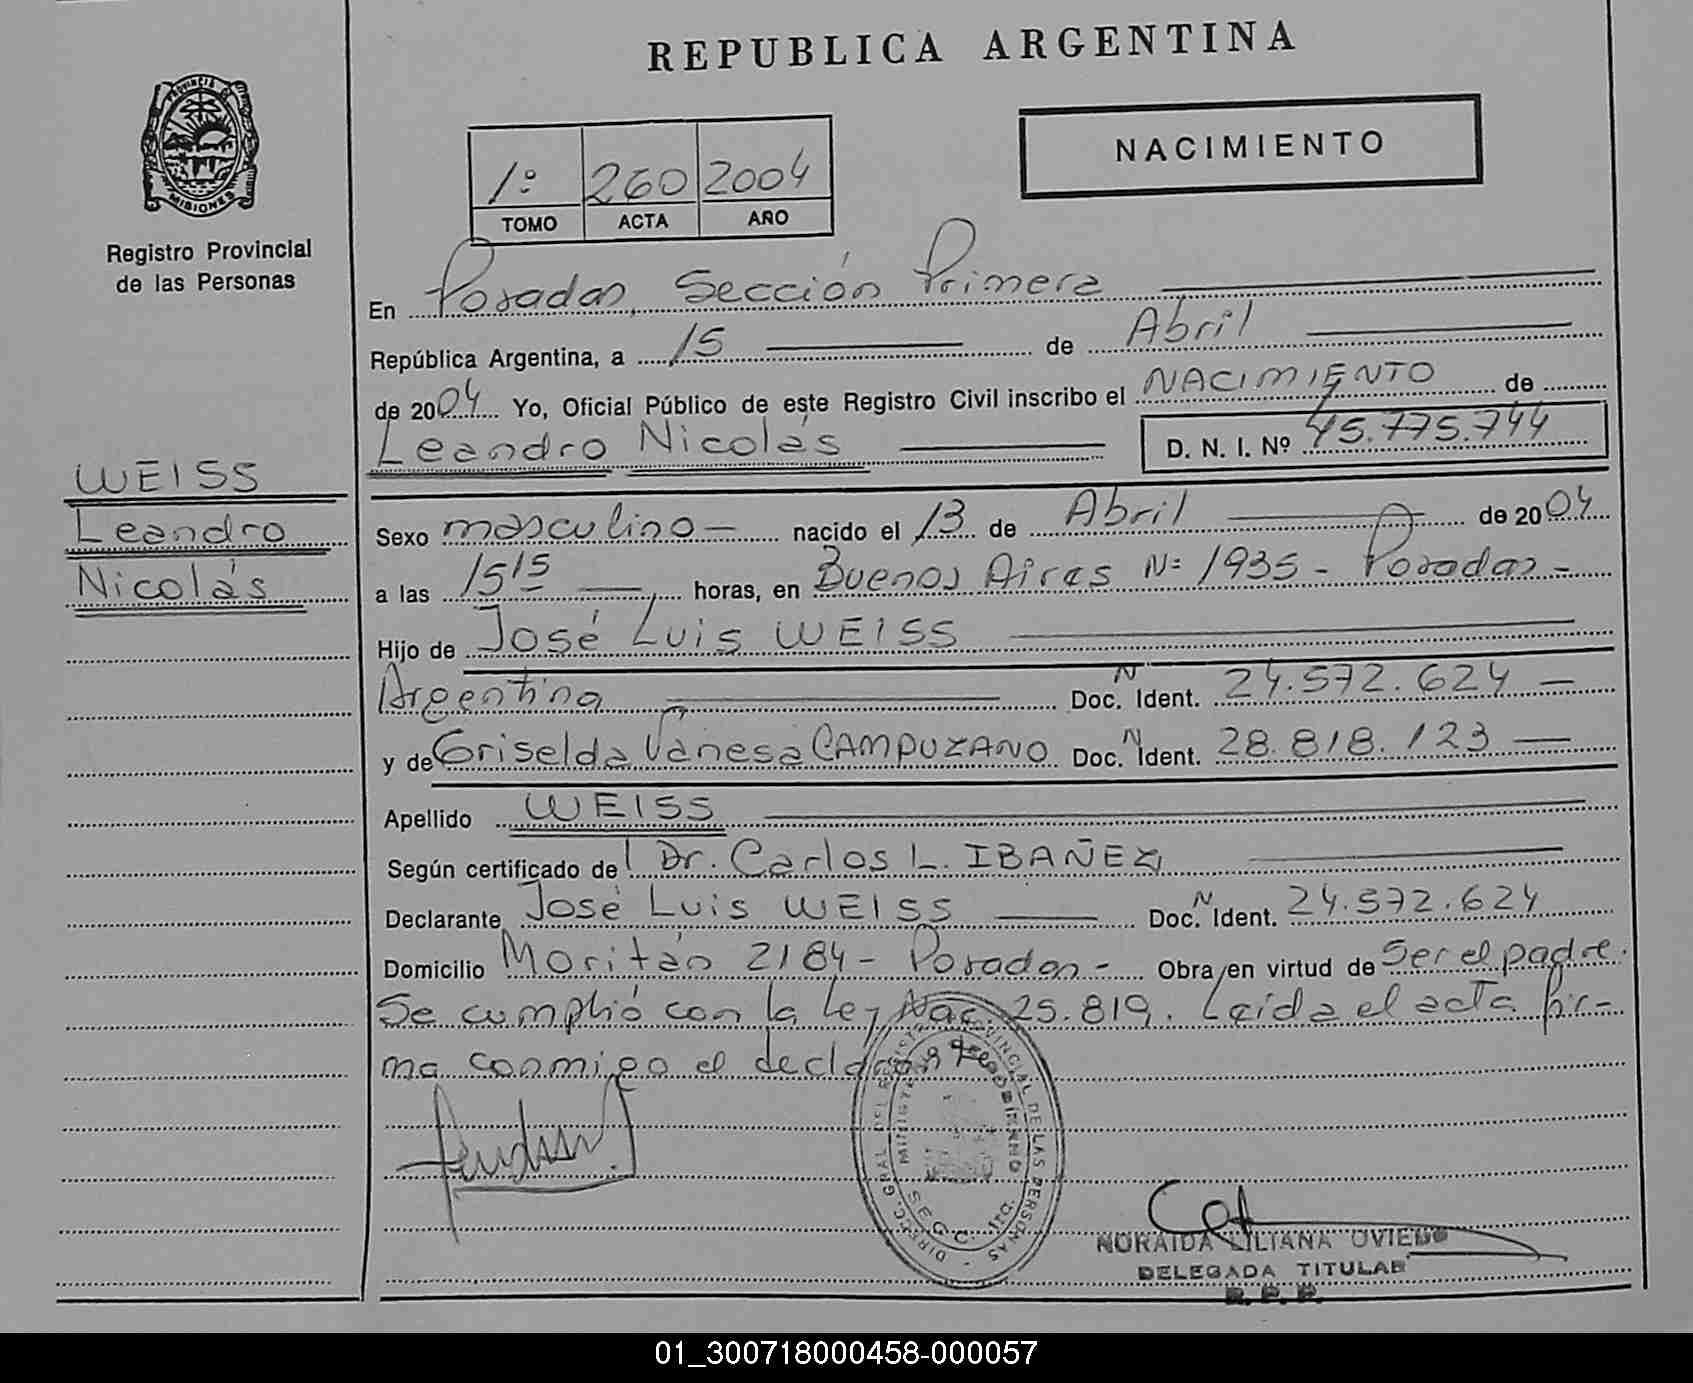 REPUBLICA ARGENTINA
NACIMIENTO
1º 260 2004
TOMO ACTA AÑO
PROVINCIA DE MISIONES
Registro Provincial
de las Personas
En Posadas, Sección Primera
República Argentina, a 15 de Abril
de 2004 Yo, Oficial Público de este Registro Civil inscribo el NACIMIENTO de
Leandro Nicolás D. N. I. Nº 45.775.744
WEISS
Leandro
Nicolás
Sexo masculino nacido el 13 de Abril de 2004
a las 15 15 horas, en Buenos Aires Nº 1935 - Posadas -
Hijo de José Luis WEISS
Argentina Doc. N. Ident. 24.572.624 —
y de Griselda Vanesa CAMPUZANO Doc. N. Ident. 28.818.123 —
Apellido WEISS
Según certificado de Dr. Carlos L. IBAÑEZ
Declarante José Luis WEISS Doc. N. Ident. 24.572.624
Domicilio Moritán 2184 - Posadas - Obra en virtud de Ser el padre.
Se cumplió con la Ley Nac. 25.819. Leída el acta fir-
ma conmigo el
DIRECC. GRAL. DEL REGISTRO PROVINCIAL DE LAS PERSONAS
NORAIDA LILIANA OVIEDO
DELEGADA TITULAR
R. P. P.
01_300718000458-000057